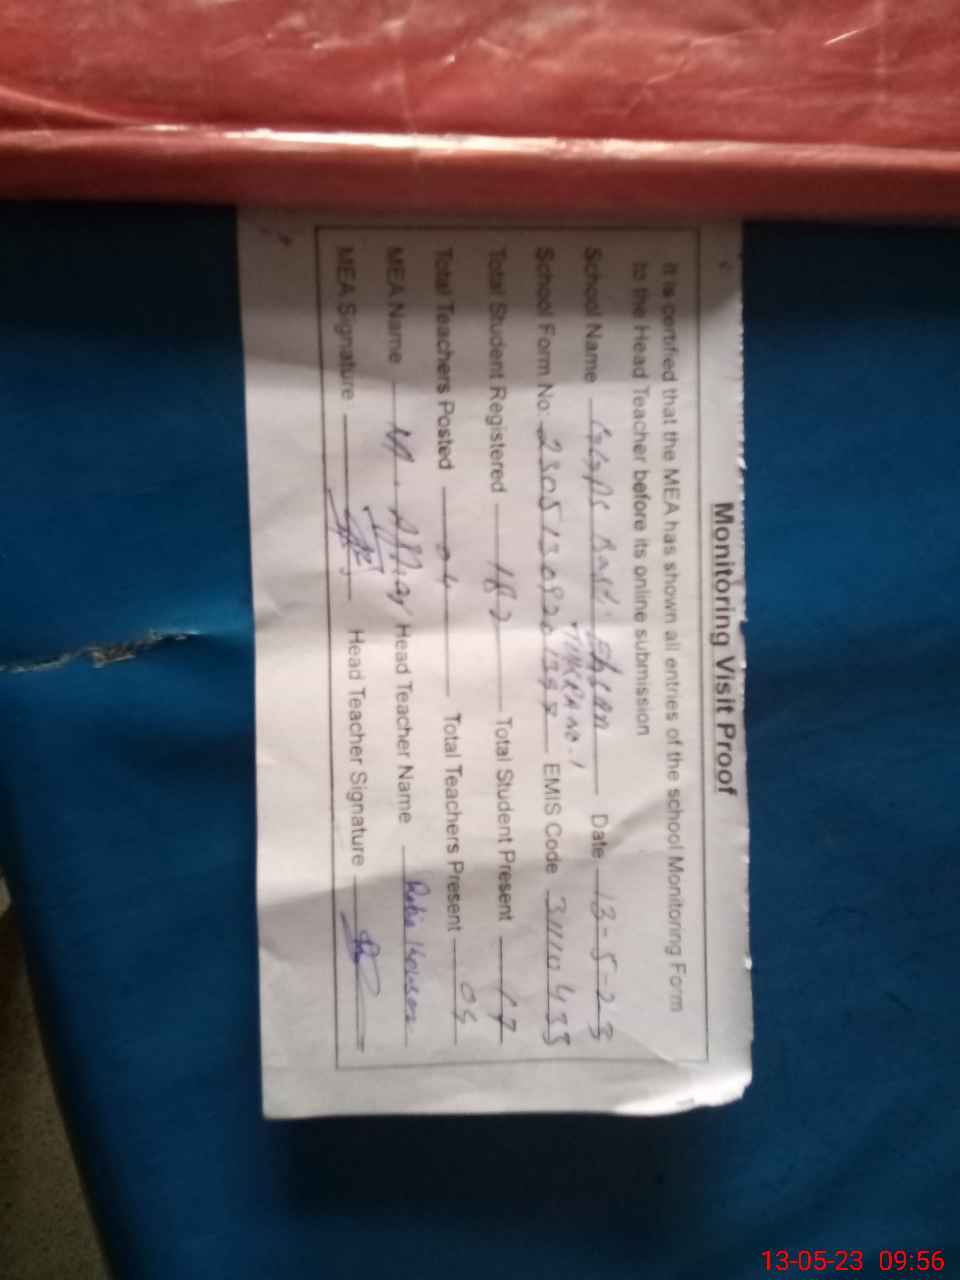 Monitoring Visit Proof
It is certified that the MEA has shown all entries of the school Monitoring Form
to the Head Teacher before its online submission
School Name Basti Ehsan Date 13-5-23
TUKRA NO-1
School Form No. EMIS Code 31110433
Total Student Registered 182 Total Student Present 17
Total Teachers Posted 04 Total Teachers Present 04
MEA Name Head Teacher Name Robia Kousar
MEA Signature Head Teacher Signature
13-05-23 09:56